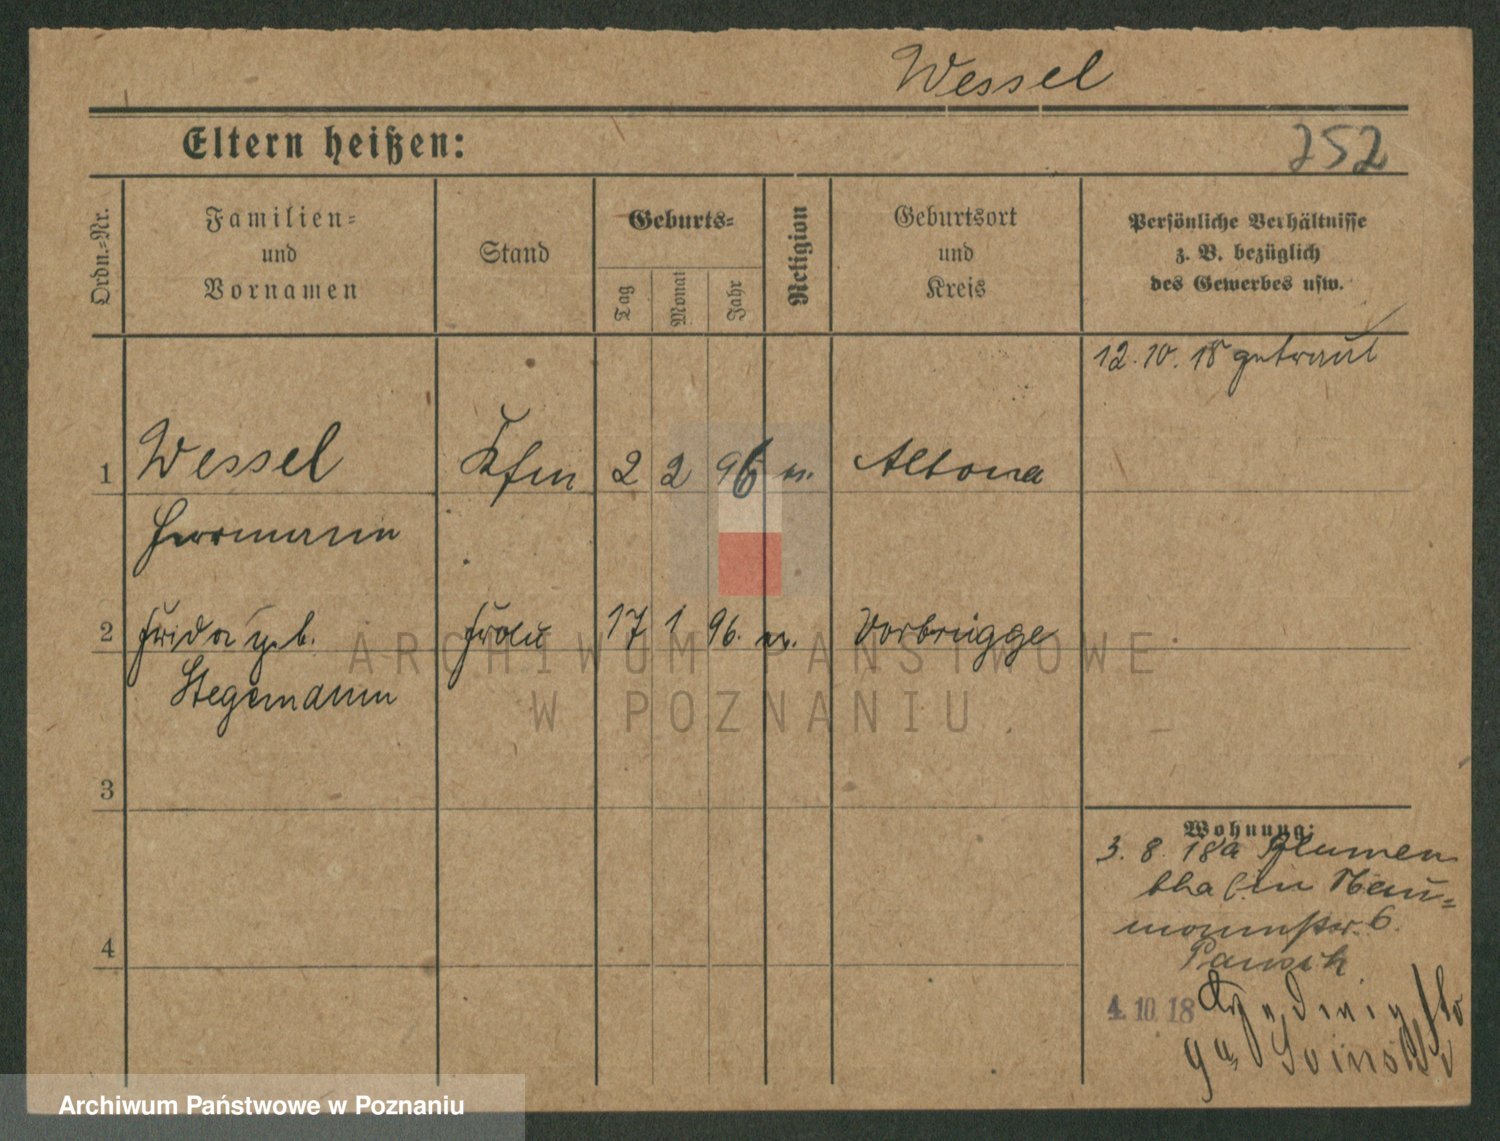 Wessel
Eltern heißen:
252
Ordn.=Nr.
Familien=
und
Vornamen
Stand
Geburts=
Tag
Monat
Jahr
Religion
Geburtsort
und
Kreis
Persönliche Verhältnisse
z. B. bezüglich
des Gewerbes usw.
12. 10. 18 getraut
1 Wessel Kfm 2 2 96 Altona
Herrmann
2 Frida geb. Frau 17 1 96. Vorbrügge
Stegemann
3
4
Wohnung:
3. 8. 18 a Blumen
thal in Nau=
mannstr. 6.
4. 10. 18
ARCHIWUM PAŃSTWOWE
W POZNANIU
Archiwum Państwowe w Poznaniu